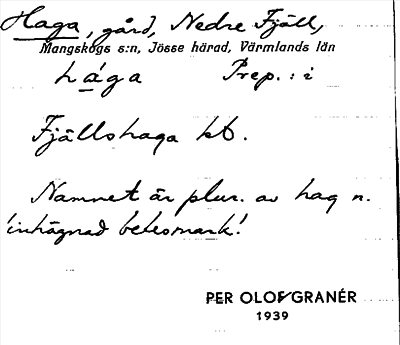 Haga, gård, Nedre Fjäll,
Mangskogs s:n, Jösse härad, Värmlands län
hága Prep.: i
Fjällshaga kb.
Namnet är plur. av hag n.
'inhägnad betesmark'.
PER OLOF GRANÉR
1939